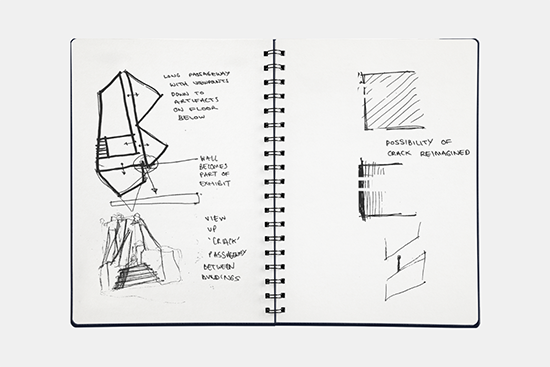 LONG PASSAGEWAY
WITH VIEWPOINTS
DOWN TO
ARTIFACTS
ON FLOOR
BELOW
WALL
BECOMES
PART OF
EXHIBIT
VIEW
UP
'CRACK'
PASSAGEWAY
BETWEEN
BUILDINGS
POSSIBILITY OF
CRACK REIMAGINED